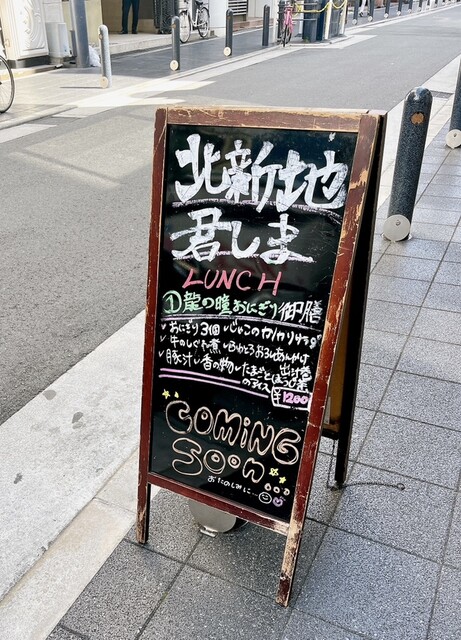 北新地
君しま
LUNCH
①龍の瞳おにぎり御膳
✓おにぎり3個 ✓じゃこのカリカリサラダ
✓牛のしぐれ煮 ✓らふとろおろしあんかけ
✓豚汁 ✓香の物 ✓たまごとほうじ茶のアイス
出汁巻
¥1200
COMING
SOON...
おたのしみに...